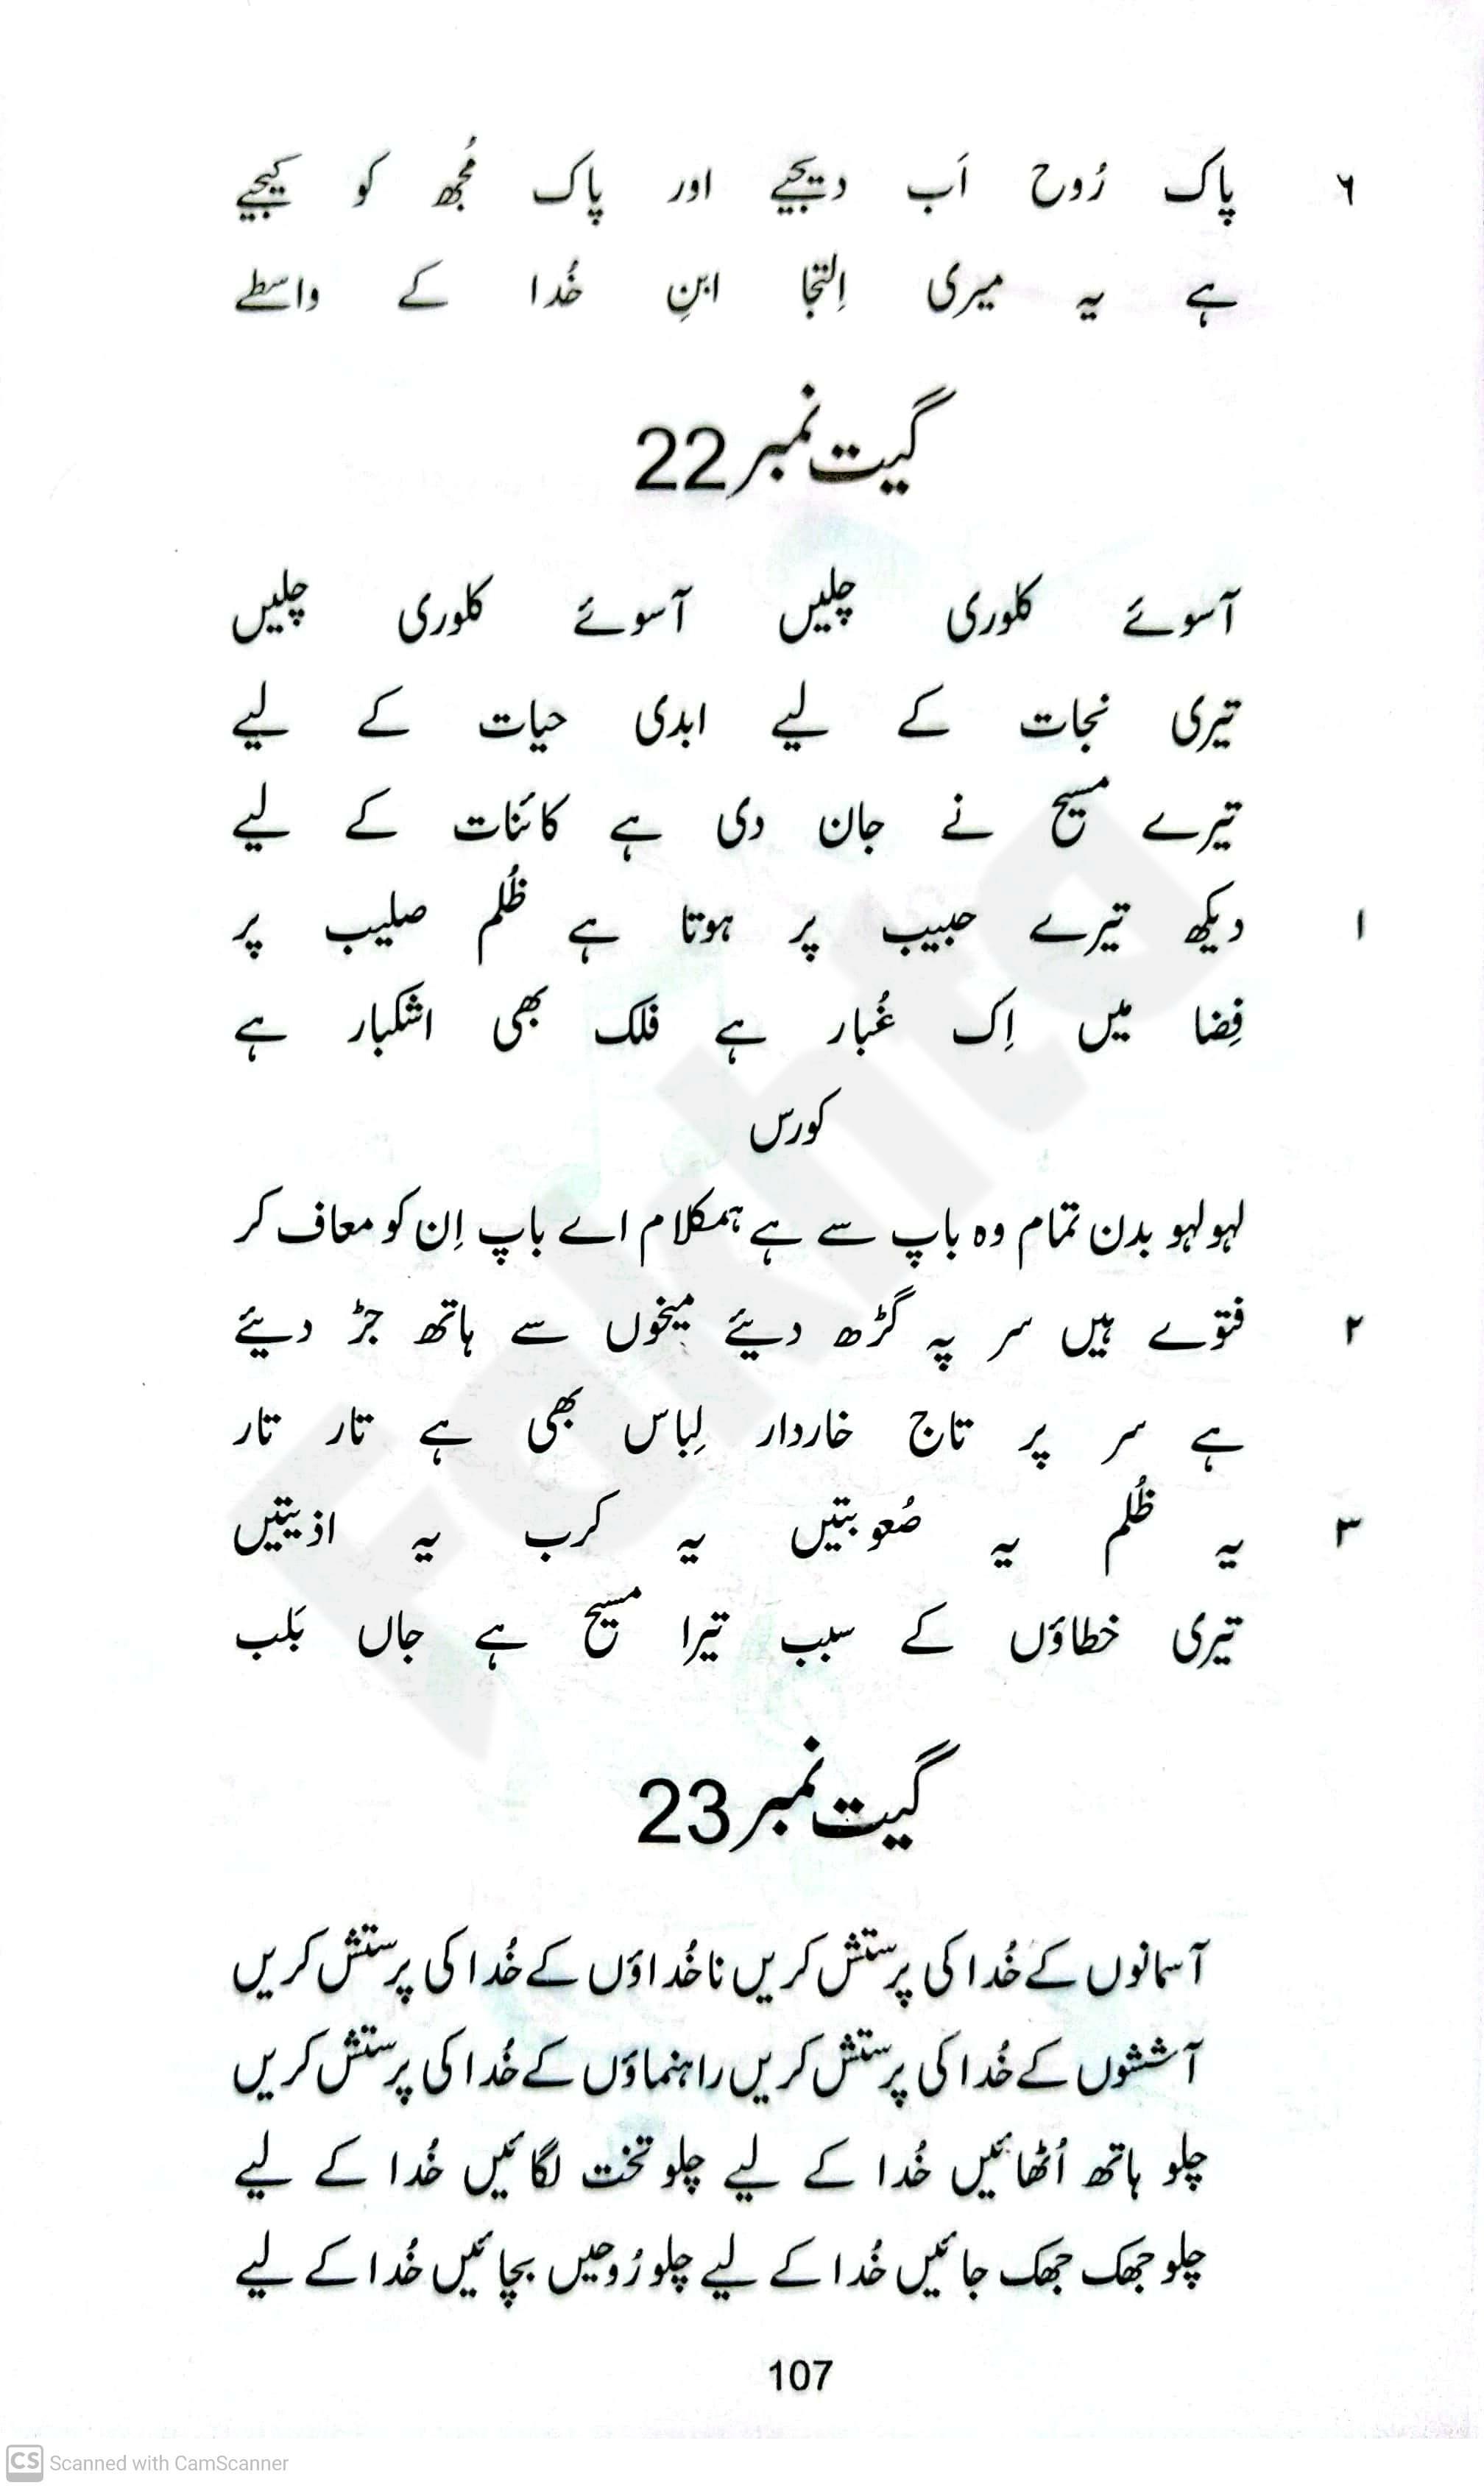 ۶ پاک رُوح اَب دیجیے اور پاک مُجھ کو کیجیے
ہے یہ میری اِلتجا ابنِ خُدا کے واسطے
گیت نمبر 22
آسوئے کلوری چلیں آسوئے کلوری چلیں
تیری نجات کے لیے ابدی حیات کے لیے
تیرے مسیح نے جان دی ہے کائنات کے لیے
۱ دیکھ تیرے حبیب پر ہوتا ہے ظُلم صلیب پر
فِضا میں اِک غُبار ہے فلک بھی اشکبار ہے
کورس
لہولہو بدن تمام وہ باپ سے ہے ہمکلام اے باپ اِن کو معاف کر
۲ فتوے ہیں سر پہ گڑھ دیئے میخوں سے ہاتھ جڑ دیئے
ہے سر پر تاج خاردار لِباس بھی ہے تار تار
۳ یہ ظُلم یہ صُعوبتیں یہ کرب یہ اذیتیں
تیری خطاؤں کے سبب تیرا مسیح ہے جاں بَلب
گیت نمبر 23
آسمانوں کے خُدا کی پرستش کریں ناخُداؤں کے خُدا کی پرستش کریں
آششوں کے خُدا کی پرستش کریں راہنماؤں کے خُدا کی پرستش کریں
چلو ہاتھ اُٹھائیں خُدا کے لیے چلو تخت لگائیں خُدا کے لیے
چلو جھک جھک جائیں خُدا کے لیے چلو رُوحیں بچائیں خُدا کے لیے
107
CS Scanned with CamScanner
Fakhta